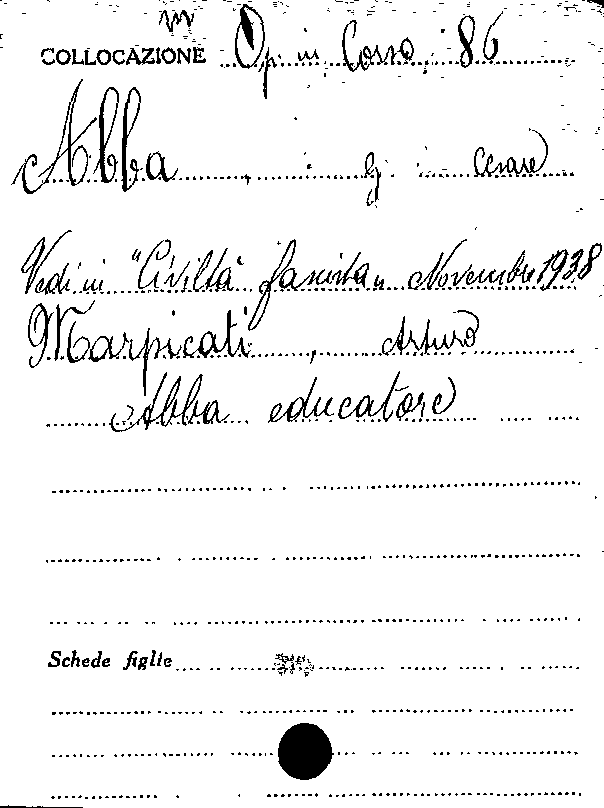 in
COLLOCAZIONE Op. in Corso, 86
Abba, G. Cesare
Vedi in "Civiltà fascista" Novembre 1938
Marpicati, Arturo
Abba educatore
Schede figlie